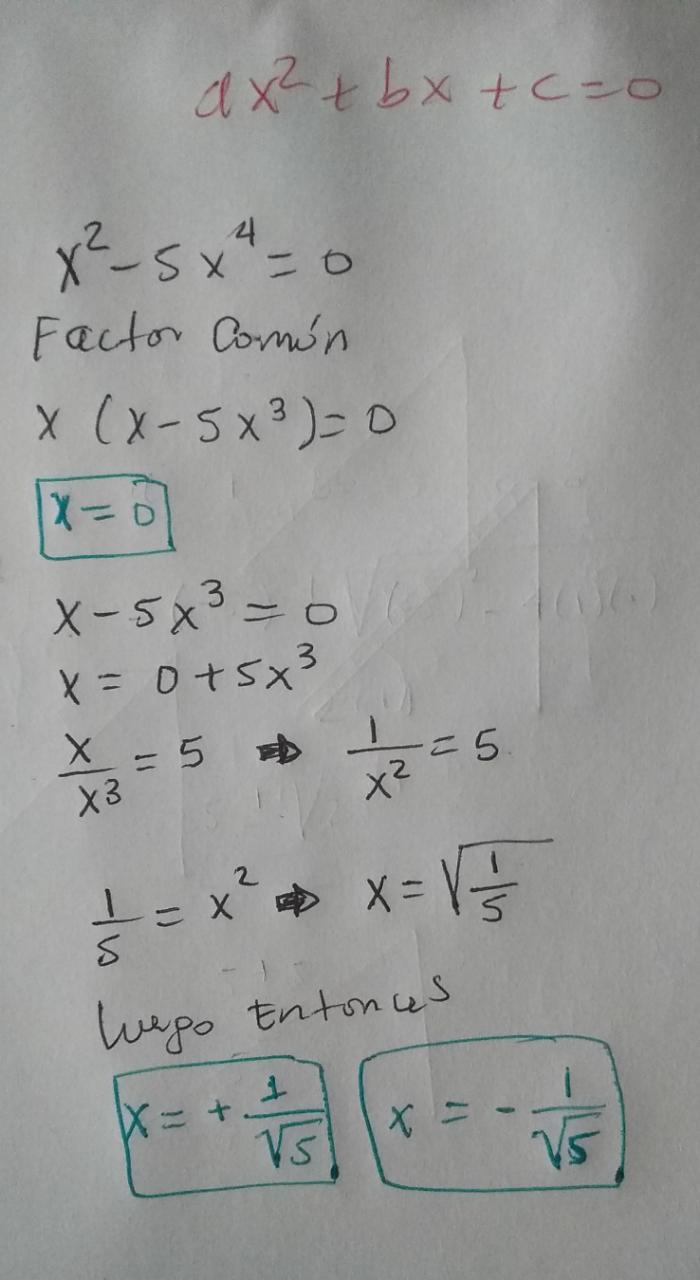 ax² + bx + c = 0
x² - 5x⁴ = 0
Factor Común
x (x - 5x³) = 0
x = 0
x - 5x³ = 0
x = 0 + 5x³
x/x³ = 5 ⇒ 1/x² = 5
1/5 = x² ⇒ x = √(1/5)
luego Entonces
x = + 1/√5 x = - 1/√5